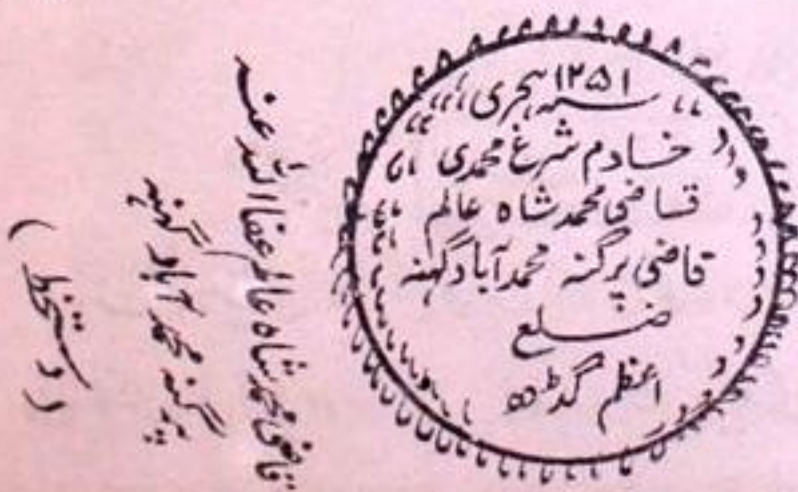 ۱۲۵۱ ہجری
خادم شرع محمدی
قاضی محمد شاہ عالم
قاضی پرگنہ محمدآباد گہنہ
ضلع
اعظم گڈھ
قاضی محمد شاہ عالم عفا اللہ عنہ
پرگنہ محمد آباد گہنہ
(دستخط)